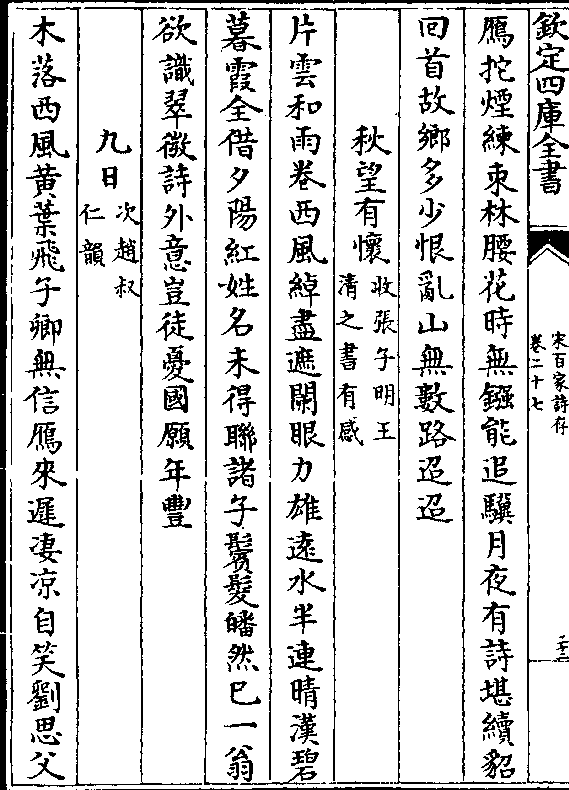 欽定四庫全書
宋百家詩存
卷二十七
鴈拕煙練束林腰花時無鏹能追驥月夜有詩堪續貂
回首故鄉多少恨亂山無數路迢迢
秋望有懷
收張子明王
清之書有感
片雲和雨卷西風綽盡遮闌眼力雄遠水半連晴漢碧
暮霞全借夕陽紅姓名未得聯諸子鬢髮皤然已一翁
欲識翠微詩外意豈徒憂國願年豐
九日
次趙叔
仁韻
木落西風黃葉飛子卿無信鴈來遲凄凉自笑劉思父